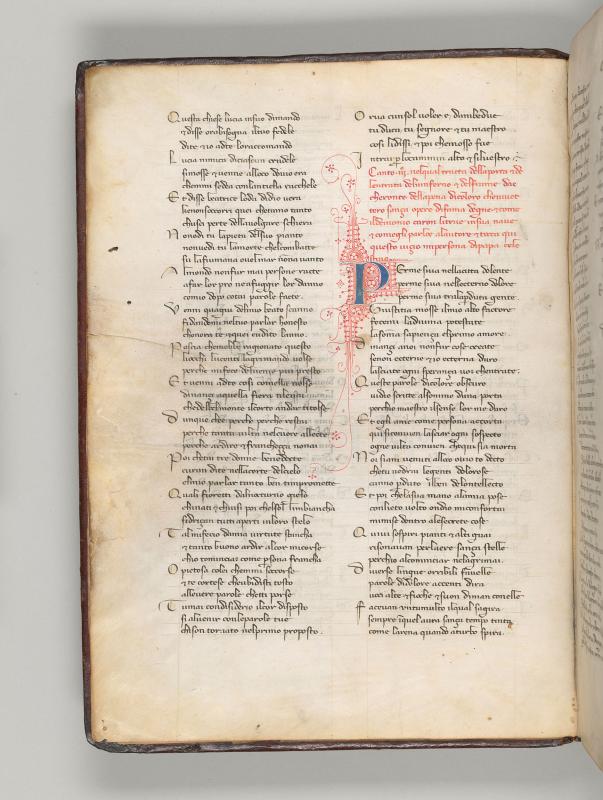 Questa chiese lucia insuo dimando
et disse orabisogna iltuo fedele
dite et io adte loraccomando
Lucia nimica diciascun crudele
simosse et uenne alloco doue era
chemmi sedea conlantica rachele
Et disse beatrice loda didio uera
che non soccorri quei chetamo tanto
chusci perte dellauolgare schiera
Nonodi tu lapieta delsuo pianto
nonuedi tu lamorte chelcombatte
su lafiumana ouelmar non a uanto
Almondo nonfur mai persone ratte
afar lor pro neafuggir lor danno
comio dopo cotai parole fatte
Venni quagiu delmio beato scanno
fidandomi neltuo parlar honesto
chonora te et quei chudito lanno
Poscia chemebbe ragionato questo
liocchi lucenti lagrimando uolse
perche mifece deluenir piu presto
Et uenni adte cosi comella uolse
dinançi aquella fiera tileuai
chedelbelmonte ilcorto andar titolse
Dunque che e perche perche restai
perche tanta uilta nelcuore allette
perche ardire et francheçça nonai
Poi cheta tre donne benedette
curan dite nellacorte delcielo
elmio parlar tanto ben timpromette
Quali fioretti dalnocturno gielo
chinati et chiusi poi chelsol limbiancha
sidriççan tutti aperti inloro stelo
Tal mifecio dimia uirtute stancha
et tanto buono ardir alcor micorse
chio cominciai come persona francha
O pietosa colei chemmi soccorse
et te cortese cheubidisti tosto
alleuere parole chetti porse
Tu mai condisiderio ilcor disposto
si aluenir conleparole tue
chison tornato nelprimo proposto.
Or ua cunsol uoler e dambedue
tu duca tu segnore et tu maestro
cosi lidissi et poi chemosso fue
Intrai per locammin alto et siluestro
Canto iij. nelqual tracta dellaporta et de
lentrata delinferno et delfiume dac
cheronte dellapena dicoloro cheuiuet
tero sança opere difama degne et come
ildemonio caron litrae insua naue
et comegli parlo alautore et tocca qui
questo uizio inpersona dipapa cele
stino
Perme siua nellacitta dolente
perme siua nelleterno dolore
perme siua tralaperduta gente
Giustitia mosse ilmio alto factore
fecemi ladiuina potestate
lasoma sapiença elprimo amore
Dinançi ame nonfur cose create
senon eterne et io eterna duro
lasciate ogni sperança uoi chentrate
Queste parole dicolore obscuro
uidio scritte alsommo duna porta
perchio maestro ilsenso lor me duro
Et egli ame come persona accorta
quisiconuien lasciar ogni sospetto
ogni uilta conuien chequi sia morta
Noi siam uenuti alloco ouio to detto
chetu uedrai legenti dolorose
canno perduto ilben delontellecto
Et poi chelasua mano alamia pose
conlieto uolto ondio miconfortai
mimise dentro alesecrete cose
Quiui sospiri pianti et alti guai
risonauan perlaere sança stelle
perchio alcominciar nelagrimai
Diuerse lingue orribili fauelle
parole didolore accenti dira
uoci alte et fioche et suon diman conelle
Faceuan untumulto ilqual sagira
sempre inquel aura sança tempo tinta
come larena quando aturbo spira.